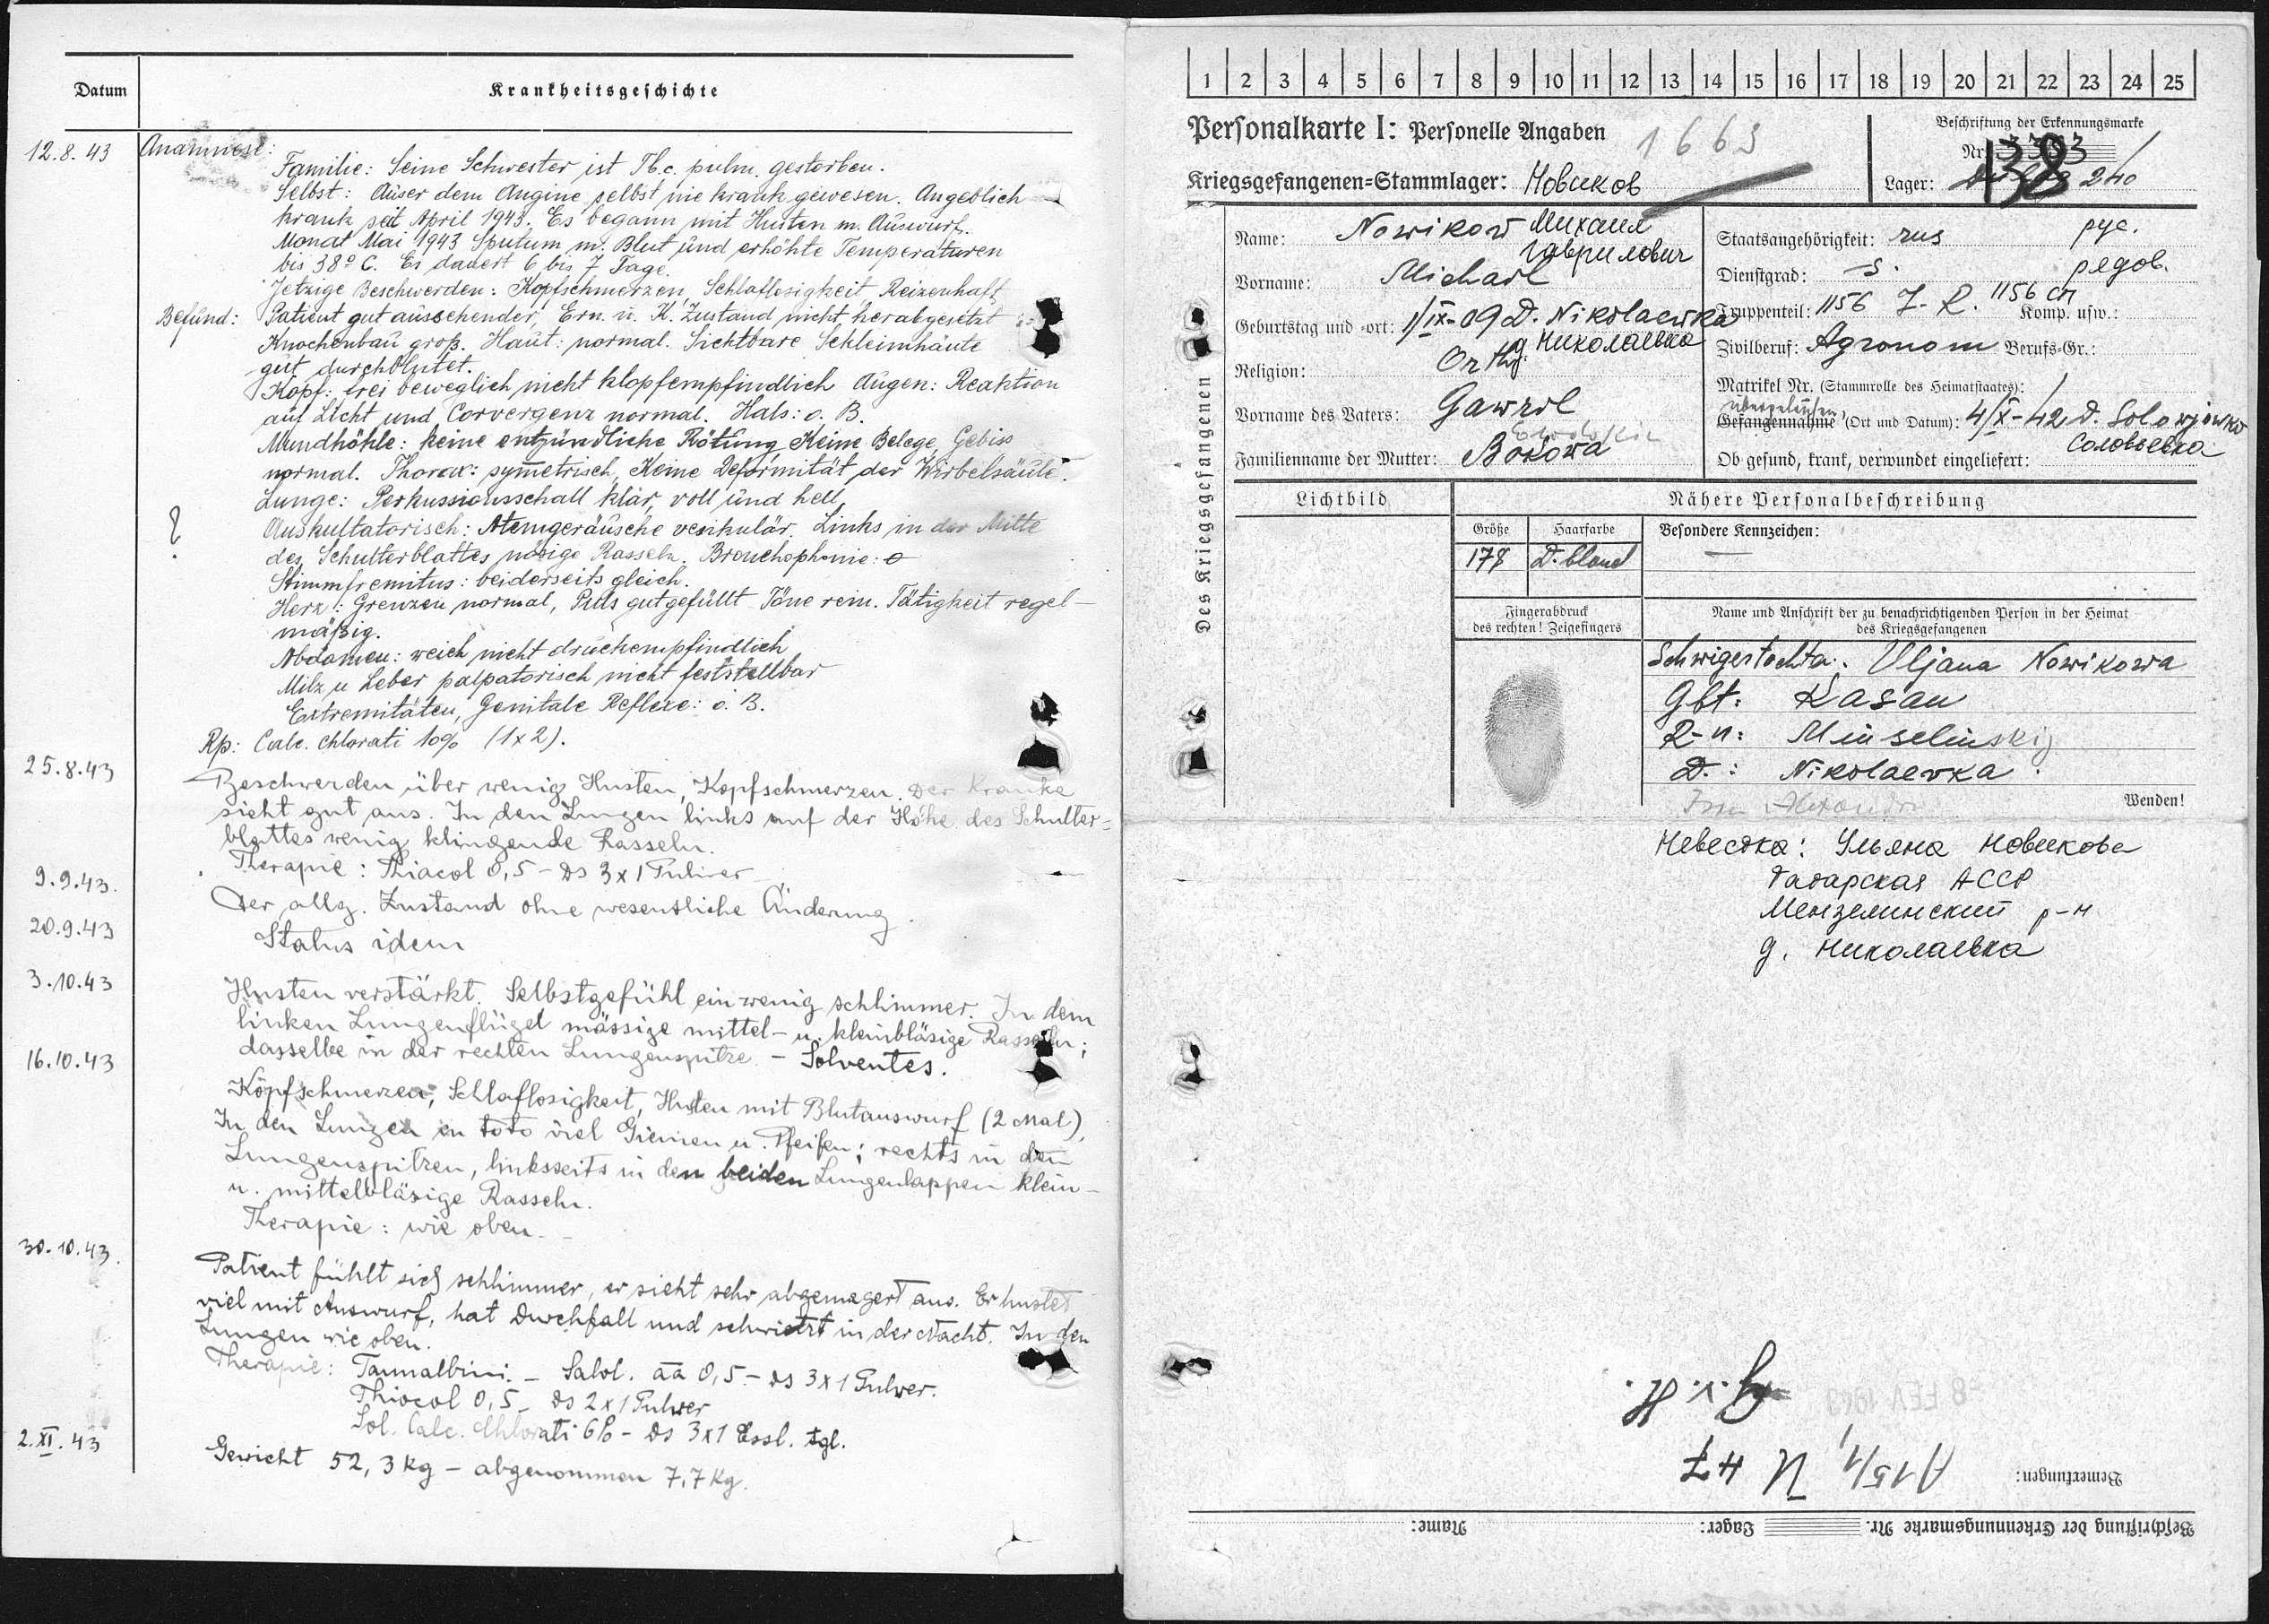 Datum
Krankheitsgeschichte
12.8.43
Anamnese:
Familie: Seine Schwester ist Tb.c. pulm. gestorben.
Selbst: Auser dem Angine selbst nie krank gewesen. Angeblich
krank seit April 1943. Es begann mit Husten m. Auswurf.
Monat Mai 1943 Sputum m. Blut und erhöhte Temperaturen
bis 38° C. Es dauert 6 bis 7 Tage.
Jetzige Beschwerden: Kopfschmerzen, Schlaflosigkeit, Reizenhaft
Befund: Patient gut aussehender, Ern. u. K. Zustand nicht herabgesetzt
Knochenbau groß. Haut: normal. Sichtbare Schleimhäute
gut durchblutet.
Kopf: frei beweglich nicht klopfempfindlich Augen: Reaktion
auf Licht und Corvergenz normal. Hals: o. B.
Mundhöhle: keine entzündliche Rötung Keine Belege, Gebiss
normal. Thorax: symetrisch, Keine Deformität der Wirbelsäule.
Lunge: Perkussionsschall klar, voll und hell,
?
Auskultatorisch: Atemgeräusche vesikulär. Links in der Mitte
des Schulterblattes Rasseln. Bronchophonie: o
Stimmfremitus: beiderseits gleich.
Herz: Grenzen normal, Puls gutgefüllt Töne rein. Tätigkeit regel-
mäßig.
Abdomen: weich nicht druckempfindlich
Milz u Leber palpatorisch nicht feststellbar
Extremitäten, Genitale Reflexe: o. B.
Rp: Calc. chlorati 10% (1x2).
25.8.43
Beschwerden über wenig Husten, Kopfschmerzen. Der Kranke
sieht gut aus. In den Lungen links auf der Höhe des Schulter=
blattes wenig klingende Rasseln.
Therapie: Thiacol 0,5 - DS 3x1 Pulver
9.9.43.
Der allg. Zustand ohne wesentliche Änderung.
20.9.43
Status idem
3.10.43
Husten verstärkt. Selbstgefühl ein wenig schlimmer. In dem
linken Lungenflügel mässige mittel- u. kleinbläsige Rasseln;
dasselbe in der rechten Lungenspitze - Solventes.
16.10.43
Kopfschmerzen, Schlaflosigkeit, Husten mit Blutauswurf (2 Mal),
In den Lungen in toto viel Giemen u. Pfeifen; rechts in den
Lungenspitzen, linksseits in den beiden Lungenlappen klein-
u. mittelbläsige Rasseln.
Therapie: wie oben.
30.10.43.
Patient fühlt sich schlimmer, er sieht sehr abgemagert aus. Er hustet
viel mit Auswurf, hat Durchfall und schwietzt in der Nacht. In den
Lungen wie oben.
Therapie: Tannalbini. - Salol. aa 0,5 - DS 3x1 Pulver.
Thiocol 0,5 - DS 2x1 Pulver
Sol. Calc. Chlorati 6% - DS 3x1 Essl. tgl.
2.XI.43
Gewicht 52,3 kg - abgenommen 7,7 kg.
1 2 3 4 5 6 7 8 9 10 11 12 13 14 15 16 17 18 19 20 21 22 23 24 25
Personalkarte I: Personelle Angaben
1663
Beschriftung der Erkennungsmarke
Nr.
138
Kriegsgefangenen=Stammlager: Новиков
Lager: 240
Des Kriegsgefangenen
Name: Nowikow Михаил
Гаврилович
Vorname: Michael
Geburtstag und -ort: 1/IX-09 D. Nikolaewka
д. Николаевка
Religion: Orth.
Vorname des Vaters: Gawril
Familienname der Mutter: Bokowa
Staatsangehörigkeit: rus рус.
Dienstgrad: S. рядов.
Truppenteil: 1156 J. R. 1156 сп Komp. usw.:
Zivilberuf: Agronom Berufs=Gr.:
Matrikel Nr. (Stammrolle des Heimatstaates):
übergelaufen
Gefangennahme (Ort und Datum): 4/X-42 D. Solowjowka
Соловьевка
Ob gesund, krank, verwundet eingeliefert:
Lichtbild
Nähere Personalbeschreibung
Größe Haarfarbe Besondere Kennzeichen:
178 D. blond —
Fingerabdruck
des rechten! Zeigefingers
Name und Anschrift der zu benachrichtigenden Person in der Heimat
des Kriegsgefangenen
Schwigertochta: Uljana Nowikowa
Gbt: Kasan
R-n: Minselinskij
D.: Nikolaevka.
Wenden!
Невестка: Ульяна Новикова
Татарская АССР
Мензелинский р-н
д. Николаевка
8 FEV 1943
A 15/1, U 47
Bemerkungen:
Beschriftung der Erkennungsmarke Nr. Lager: Name: